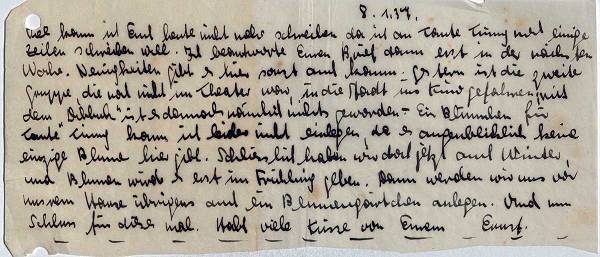 8.1.37.
kann ich Euch heute nicht mehr schreiben da ich an Tante Cumy noch einige
Zeilen schreiben will. Ich beantworte Euren Brief dann erst in der nächsten
Woche. Neuigkeiten gibt es hier sonst auch kaum. Gestern ist die zweite
Gruppe die noch nicht im Theater war, in die Stadt ins Kino gefahren, mit
dem " ist es demnach nämlich nichts geworden. Ein Blümchen für
Tante kann ich leider nicht einlegen, da es augenblicklich keine
einzige Blume hier gibt. Schliesslich haben wir doch jetzt auch Winter,
und Blumen wird es erst im Frühling geben. Dann werden wir uns vor
unserem Hause übrigens auch ein Blumengärtchen anlegen. Und nun
Schluss für dieses mal. Habt viele Küsse von Eurem Ernst.